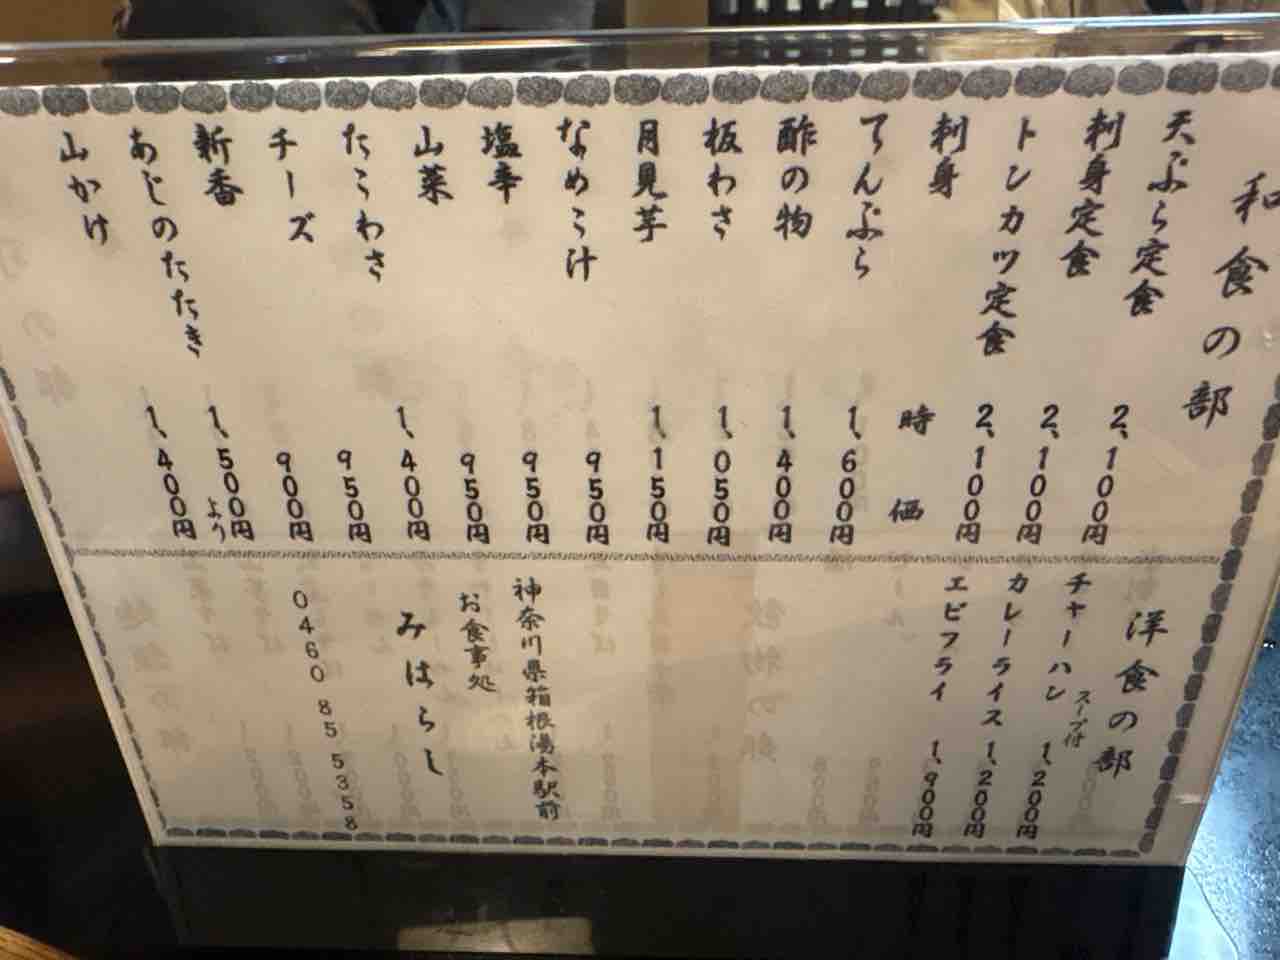 和食の部
天ぷら定食 2、100円
刺身定食 2、100円
トンカツ定食 2、100円
刺身 時価
てんぷら 1、600円
酢の物 1、400円
板わさ 1、050円
月見芋 1、150円
なめこ汁 950円
塩辛 950円
山菜 950円
たこわさ 1、400円
チーズ 950円
新香 900円
あじのたたき 1、500円より
山かけ 1、400円
洋食の部
チャーハン スープ付 1、200円
カレーライス 1、200円
エビフライ 1、900円
神奈川県箱根湯本駅前
お食事処
みはらし
0460 85 5358